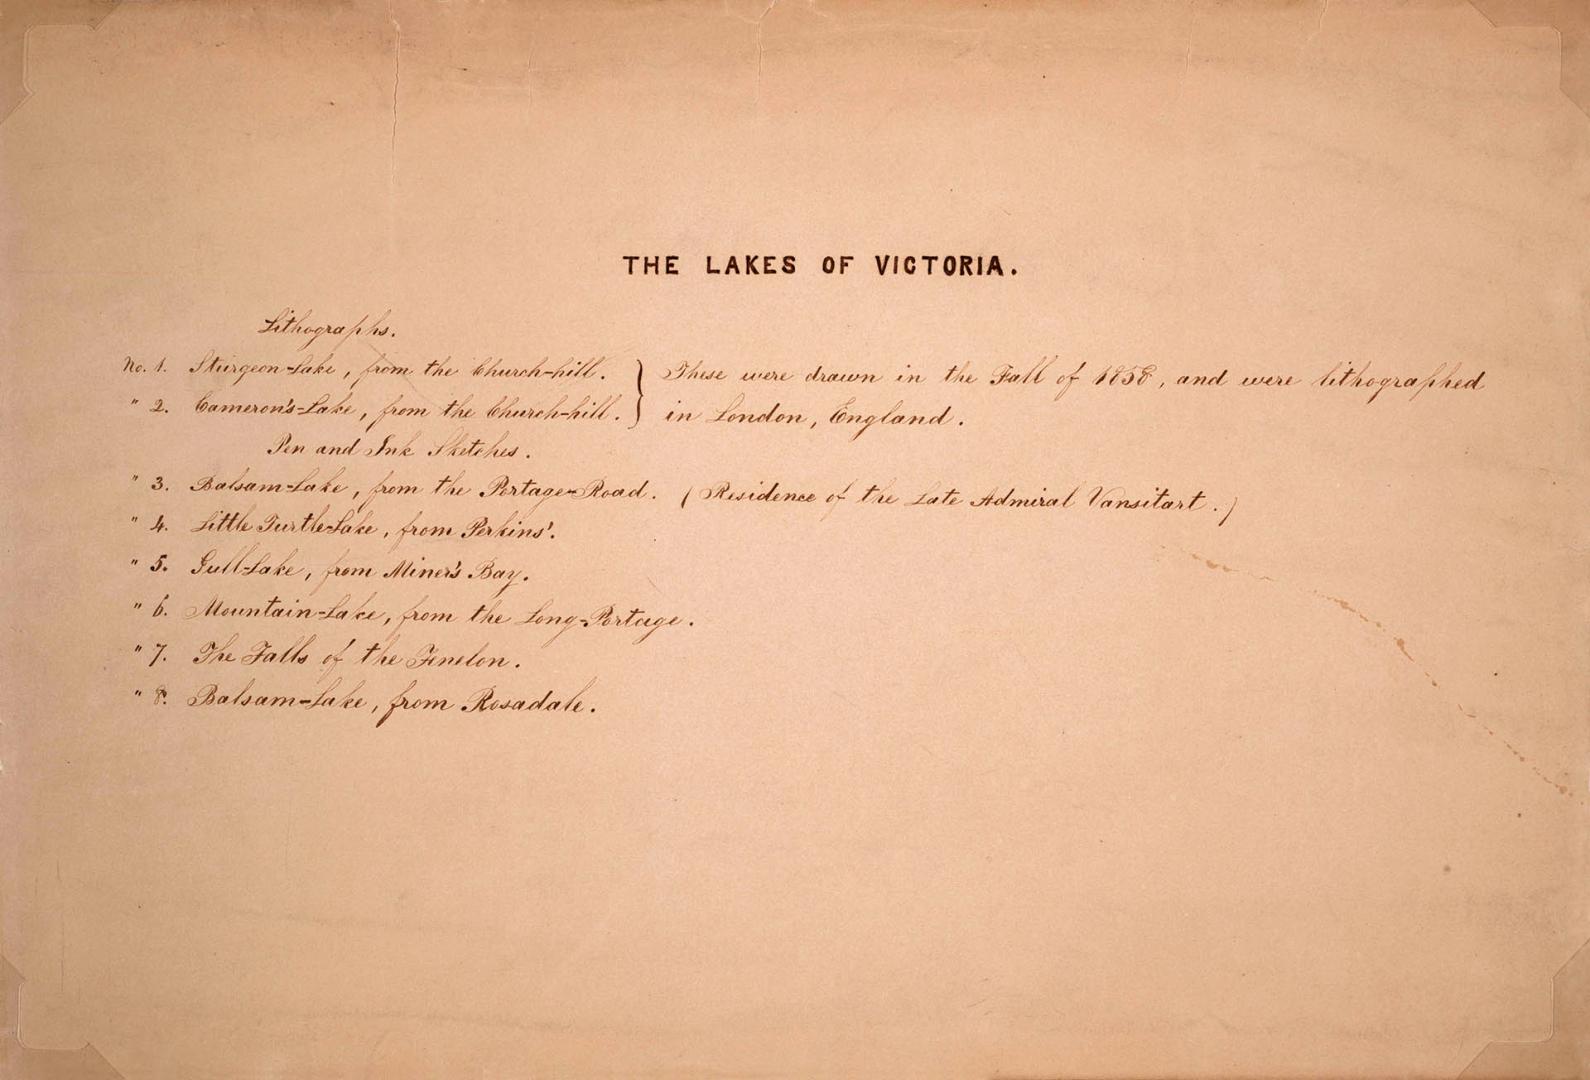 THE LAKES OF VICTORIA.
Lithographs.
No. 1. Sturgeon-Lake, from the Church-hill. } These were drawn in the Fall of 1858, and were lithographed
" 2. Cameron's-Lake, from the Church-hill. } in London, England.
Pen and Ink Sketches.
" 3. Balsam-Lake, from the Portage-Road. (Residence of the Late Admiral Vansitart.)
" 4. Little Turtle-Lake, from Perkins'.
" 5. Gull-Lake, from Miner's Bay.
" 6. Mountain-Lake, from the Long-Portage.
" 7. The Falls of the Fenelon.
" 8. Balsam-Lake, from Rosadale.